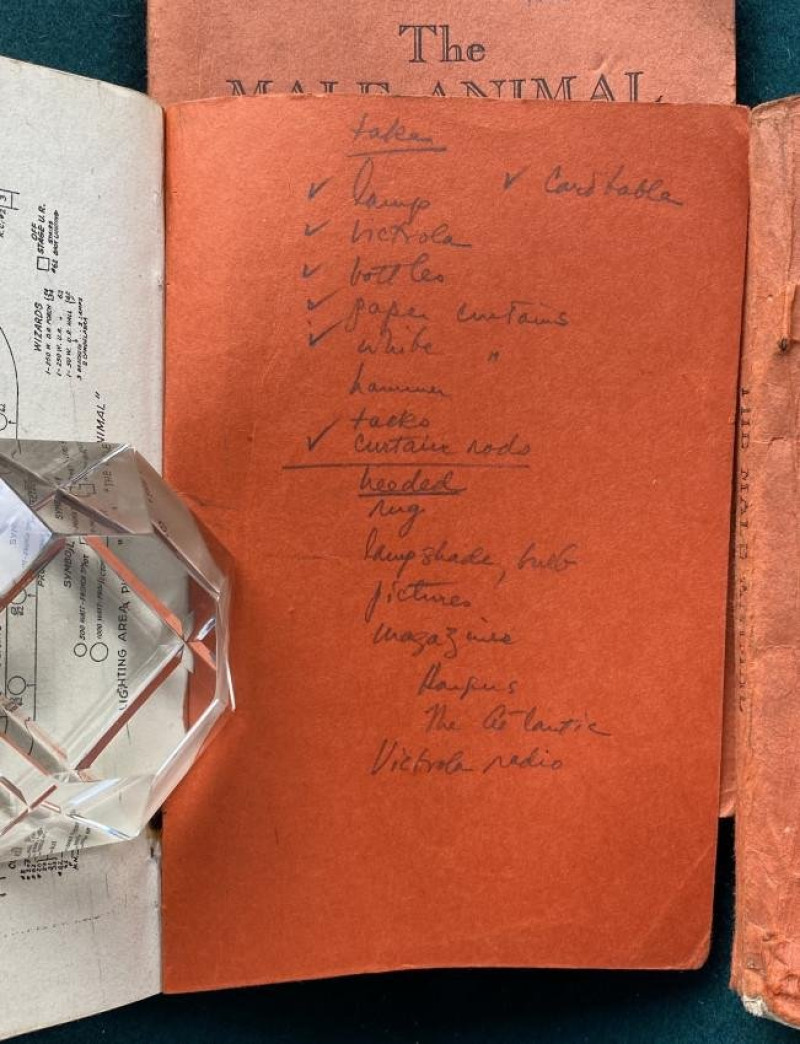 The
MALE ANIMAL
taken
✓ lamp
✓ Card table
✓ Victrola
✓ bottles
✓ paper curtains
✓ white "
hammer
tacks
✓ curtain rods
needed
rug
lampshade, bulb
pictures
magazine
Harpers
The Atlantic
Victrola radio
OFF
STAGE U.R.
WIZARDS
NIMAL"
SYMBOL
500 WATT
1000 WATT
LIGHTING AREA
THE MALE ANIMAL